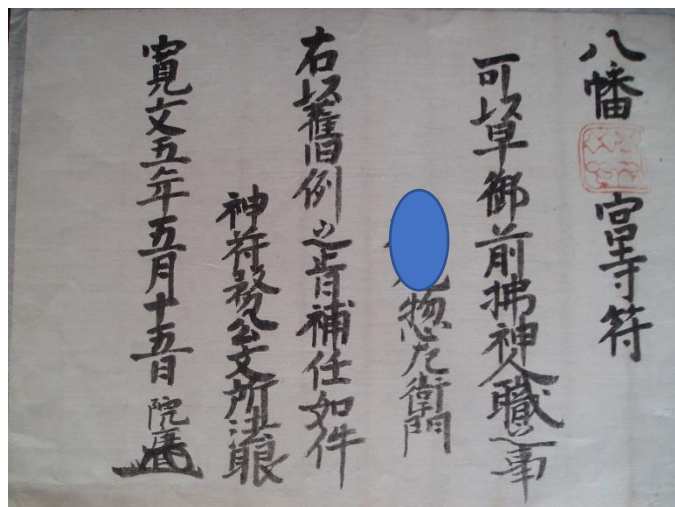 八幡宮寺符
可以早御前拂神人職之事
惣左衛門
右以舊例之旨補任如件
神符発公文所法眼
寛文五年五月十五日 院廰